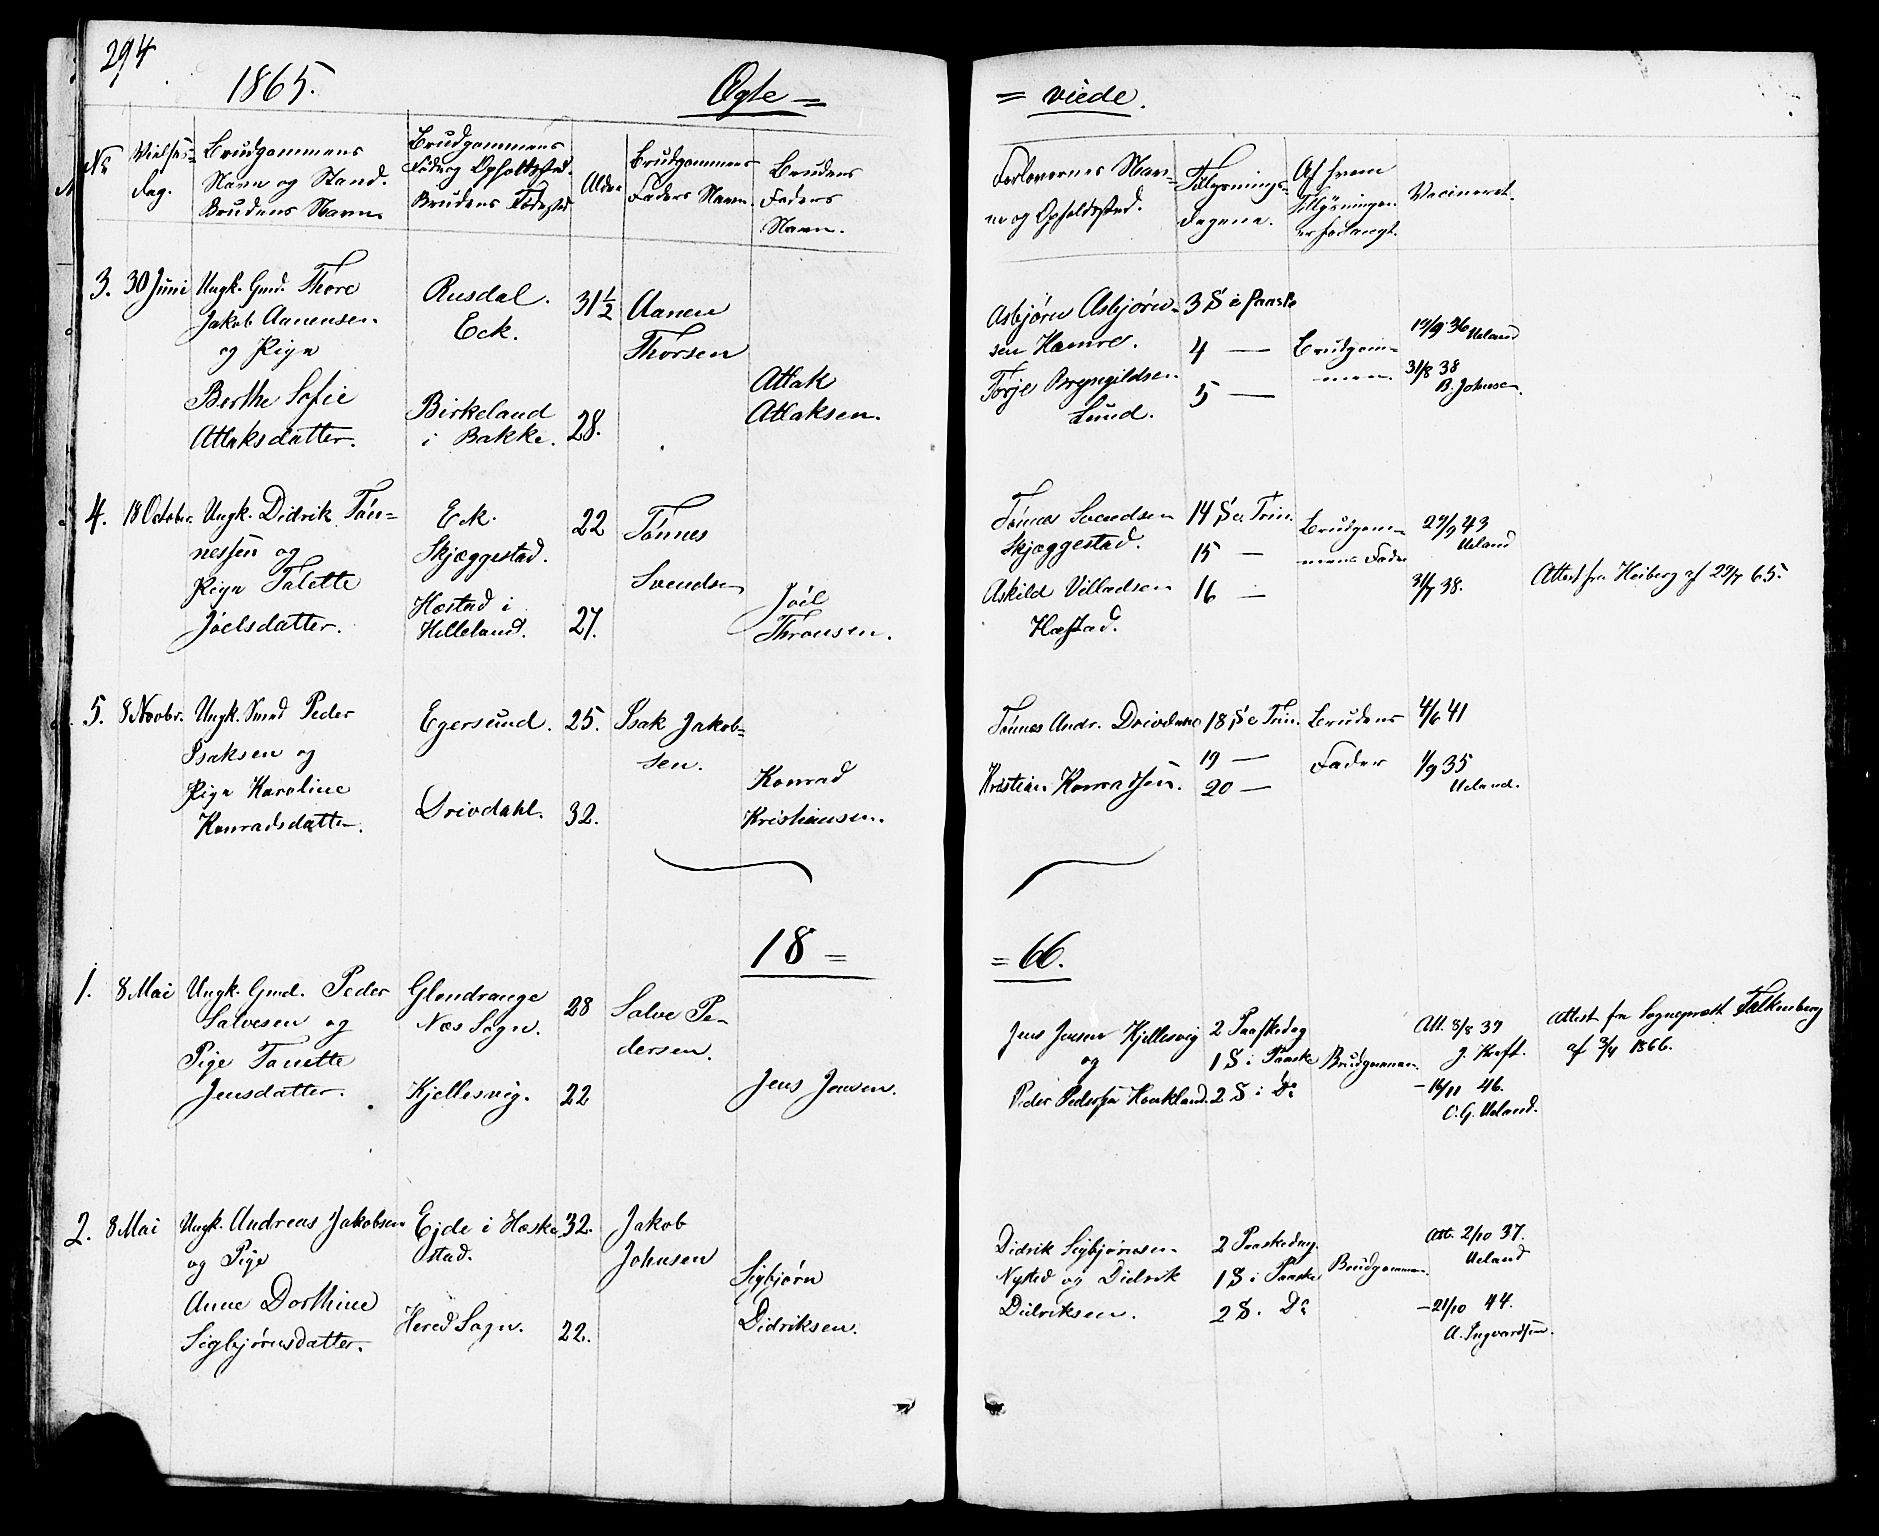 294
1865.
Ægte =
= viede.
No
Vielses-
dag.
Brudgommens
Navn og Stand.
Brudens Navn.
Brudgommens
Føde og Opholdssted.
Brudens Fødested
Alder
Brudgommens
Faders Navn.
Brudens
Faders
Navn.
Forlovernes Nav-
ne og Opholdssted.
Tillysnings-
dagene.
Af hvem
Tillysningen
er forlangt.
Vacineret.
3. 30 Juni
Ungk. Gmd. Thore
Jakob Aanensen
og Pige
Berthe Sofie
Atlaksdatter.
Rusdal.
Eek.
Birkeland
i Bakke.
31 1/2
28.
Aanen
Thorsen
Atlak
Atlaksen.
Asbjørn Asbjørn-
sen Hamre.
Torje Bryngildsen
Lund.
3 S e Paaske
4 —
5 —
Brudgom-
men.
19/9 36 Ueland
31/8 38
B. Johnsen.
4. 18 Octobr.
Ungk. Didrik Tøn-
nessen og
Pige Talette
Joelsdatter.
Eek.
Skjæggestad.
Hæstad i
Helleland.
22
27.
Tønnes
Svendsen
Joel
Thronsen.
Tønnes Svendsen
Skjæggestad.
Askild Villadsen
Hæstad.
14 S e. Trin.
15 —
16 —
Brudgom-
mens Fader
29/9 43
Ueland
31/7 38.
Attest fra Heiberg af 29/7 65.
5. 8 Novbr.
Ungk. Smed Peder
Isaksen og
Pige Karoline
Konradsdatter.
Egersund.
Drivdahl.
25.
32.
Isak Jakob-
sen.
Konrad
Kristiansen.
Tønnes Andr. Drivdahl
Kristian Konradsen.
18 S e Trin.
19 —
20 —
Brudens
Fader
4/6 41
1/9 35
Ueland.
18 =
= 66.
1. 8 Mai
Ungk. Gmd. Peder
Salvesen og
Pige Tanette
Jensdatter.
Glendrange
Næs Sogn.
Kjellesvig.
28
22
Salve Pe-
dersen.
Jens Jensen.
Jens Jensen Kjellesvig
og
Peder Pedersen Haukland.
2 Paaskedag
1 S i Paaske
2 S i Do
Brudgommen.
Att. 8/8 39
J. Kraft.
— 16/11 46.
C. G. Ueland.
Attest fra Sogneprest Falkenberg
af 3/4 1866.
2. 8 Mai
Ungk. Andreas Jakobsen
og Pige
Anne Dorthine
Sigbjørnsdatter.
Ejde i Hæske-
stad.
Hered Sogn.
32.
22.
Jakob
Johnsen
Sigbjørn
Didriksen.
Didrik Sigbjørnsen
Nysted og Didrik
Didriksen.
2 Paaskedag.
1 S i Paaske
2 S. Do
Brudgommen.
Att. 2/10 37.
Ueland
— 21/10 44.
A. Ingvardsen.